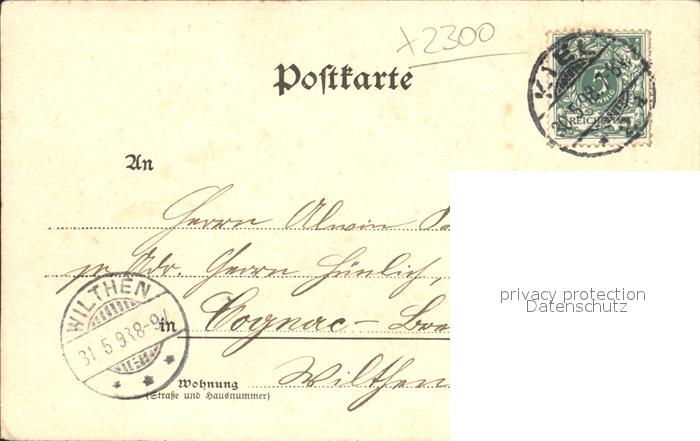 x2300
Postkarte
KIEL
5
REICHSPOST
An
Herrn Alwin
p. Adr. Herrn Hünlich,
WILTHEN
31.5.98.8-9V.
in Cognac-Bre
Wohnung
Wilthen
(Straße und Hausnummer)
privacy protection
Datenschutz